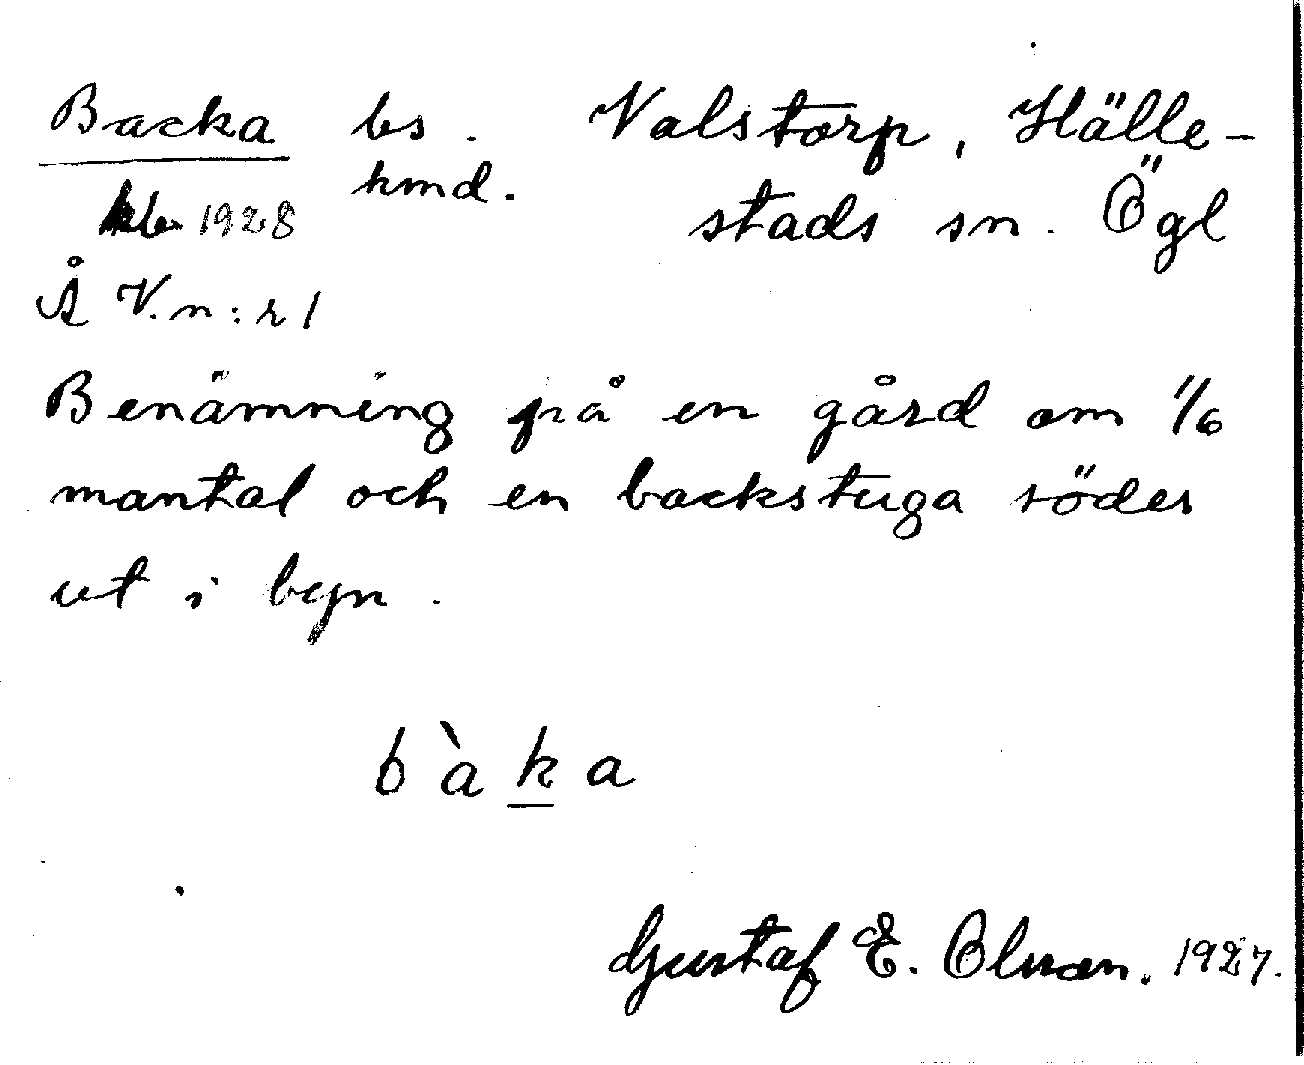 Backa bs. Valstorp, Hälle-
hmd. stads sn. Ögl
1928
Å V. n:r 1
Benämning på en gård om 1/6
mantal och en backstuga söder
ut i byn.
bàka
Gustaf E. Olsson. 1927.